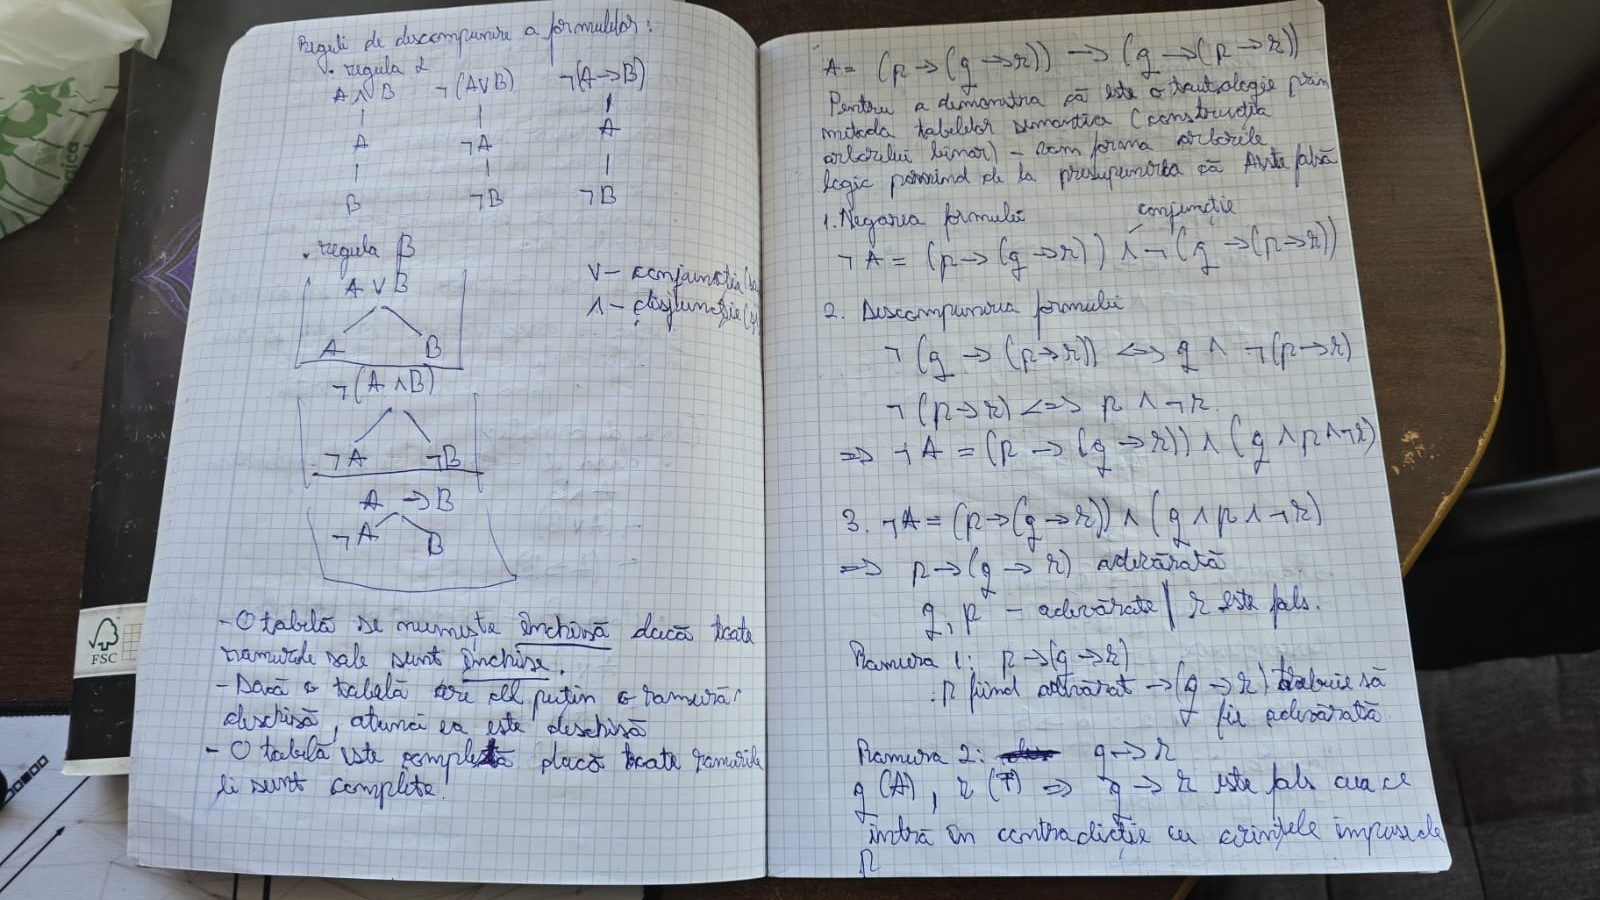 Reguli de descompunere a formulelor:
• regula α
A ∧ B   ¬(A∨B)   ¬(A→B)
A   ¬A   A
B   ¬B   ¬B
• regula β
A ∨ B
A   B
¬(A∧B)
¬A   ¬B
A → B
¬A   B
∨ – conjunctia
∧ – disjunctie
- O tabelă se numește închisă dacă toate
ramurile sale sunt închise.
- Dacă o tabelă are cel puțin o ramură
deschisă, atunci ea este deschisă
- O tabelă este completă dacă toate ramurile
ei sunt complete.
A = (p→(q→r)) → (q→(p→r))
Pentru a demonstra că este o tautologie prin
metoda tabelelor semantice (construcția
arborelui binar) – vom forma arborele
logic pornind de la presupunerea că A este falsă
1. Negarea formulei   conjuncție
¬A = (p→(q→r)) ∧ ¬(q→(p→r))
2. Descompunerea formulei
¬(q→(p→r)) <=> q ∧ ¬(p→r)
¬(p→r) <=> p ∧ ¬r.
=> ¬A = (p→(q→r)) ∧ (q∧p∧¬r)
3. ¬A = (p→(q→r)) ∧ (q∧p∧¬r)
=> p→(q→r) adevărată
q, p – adevărate | r este fals.
Ramura 1: p→(q→r)
p fiind adevărat → (q→r) trebuie să
fie adevărată.
Ramura 2: q→r
q (A), r (F) => q→r este fals ceea ce
intră în contradicție cu cerințele impuse de
p
FSC